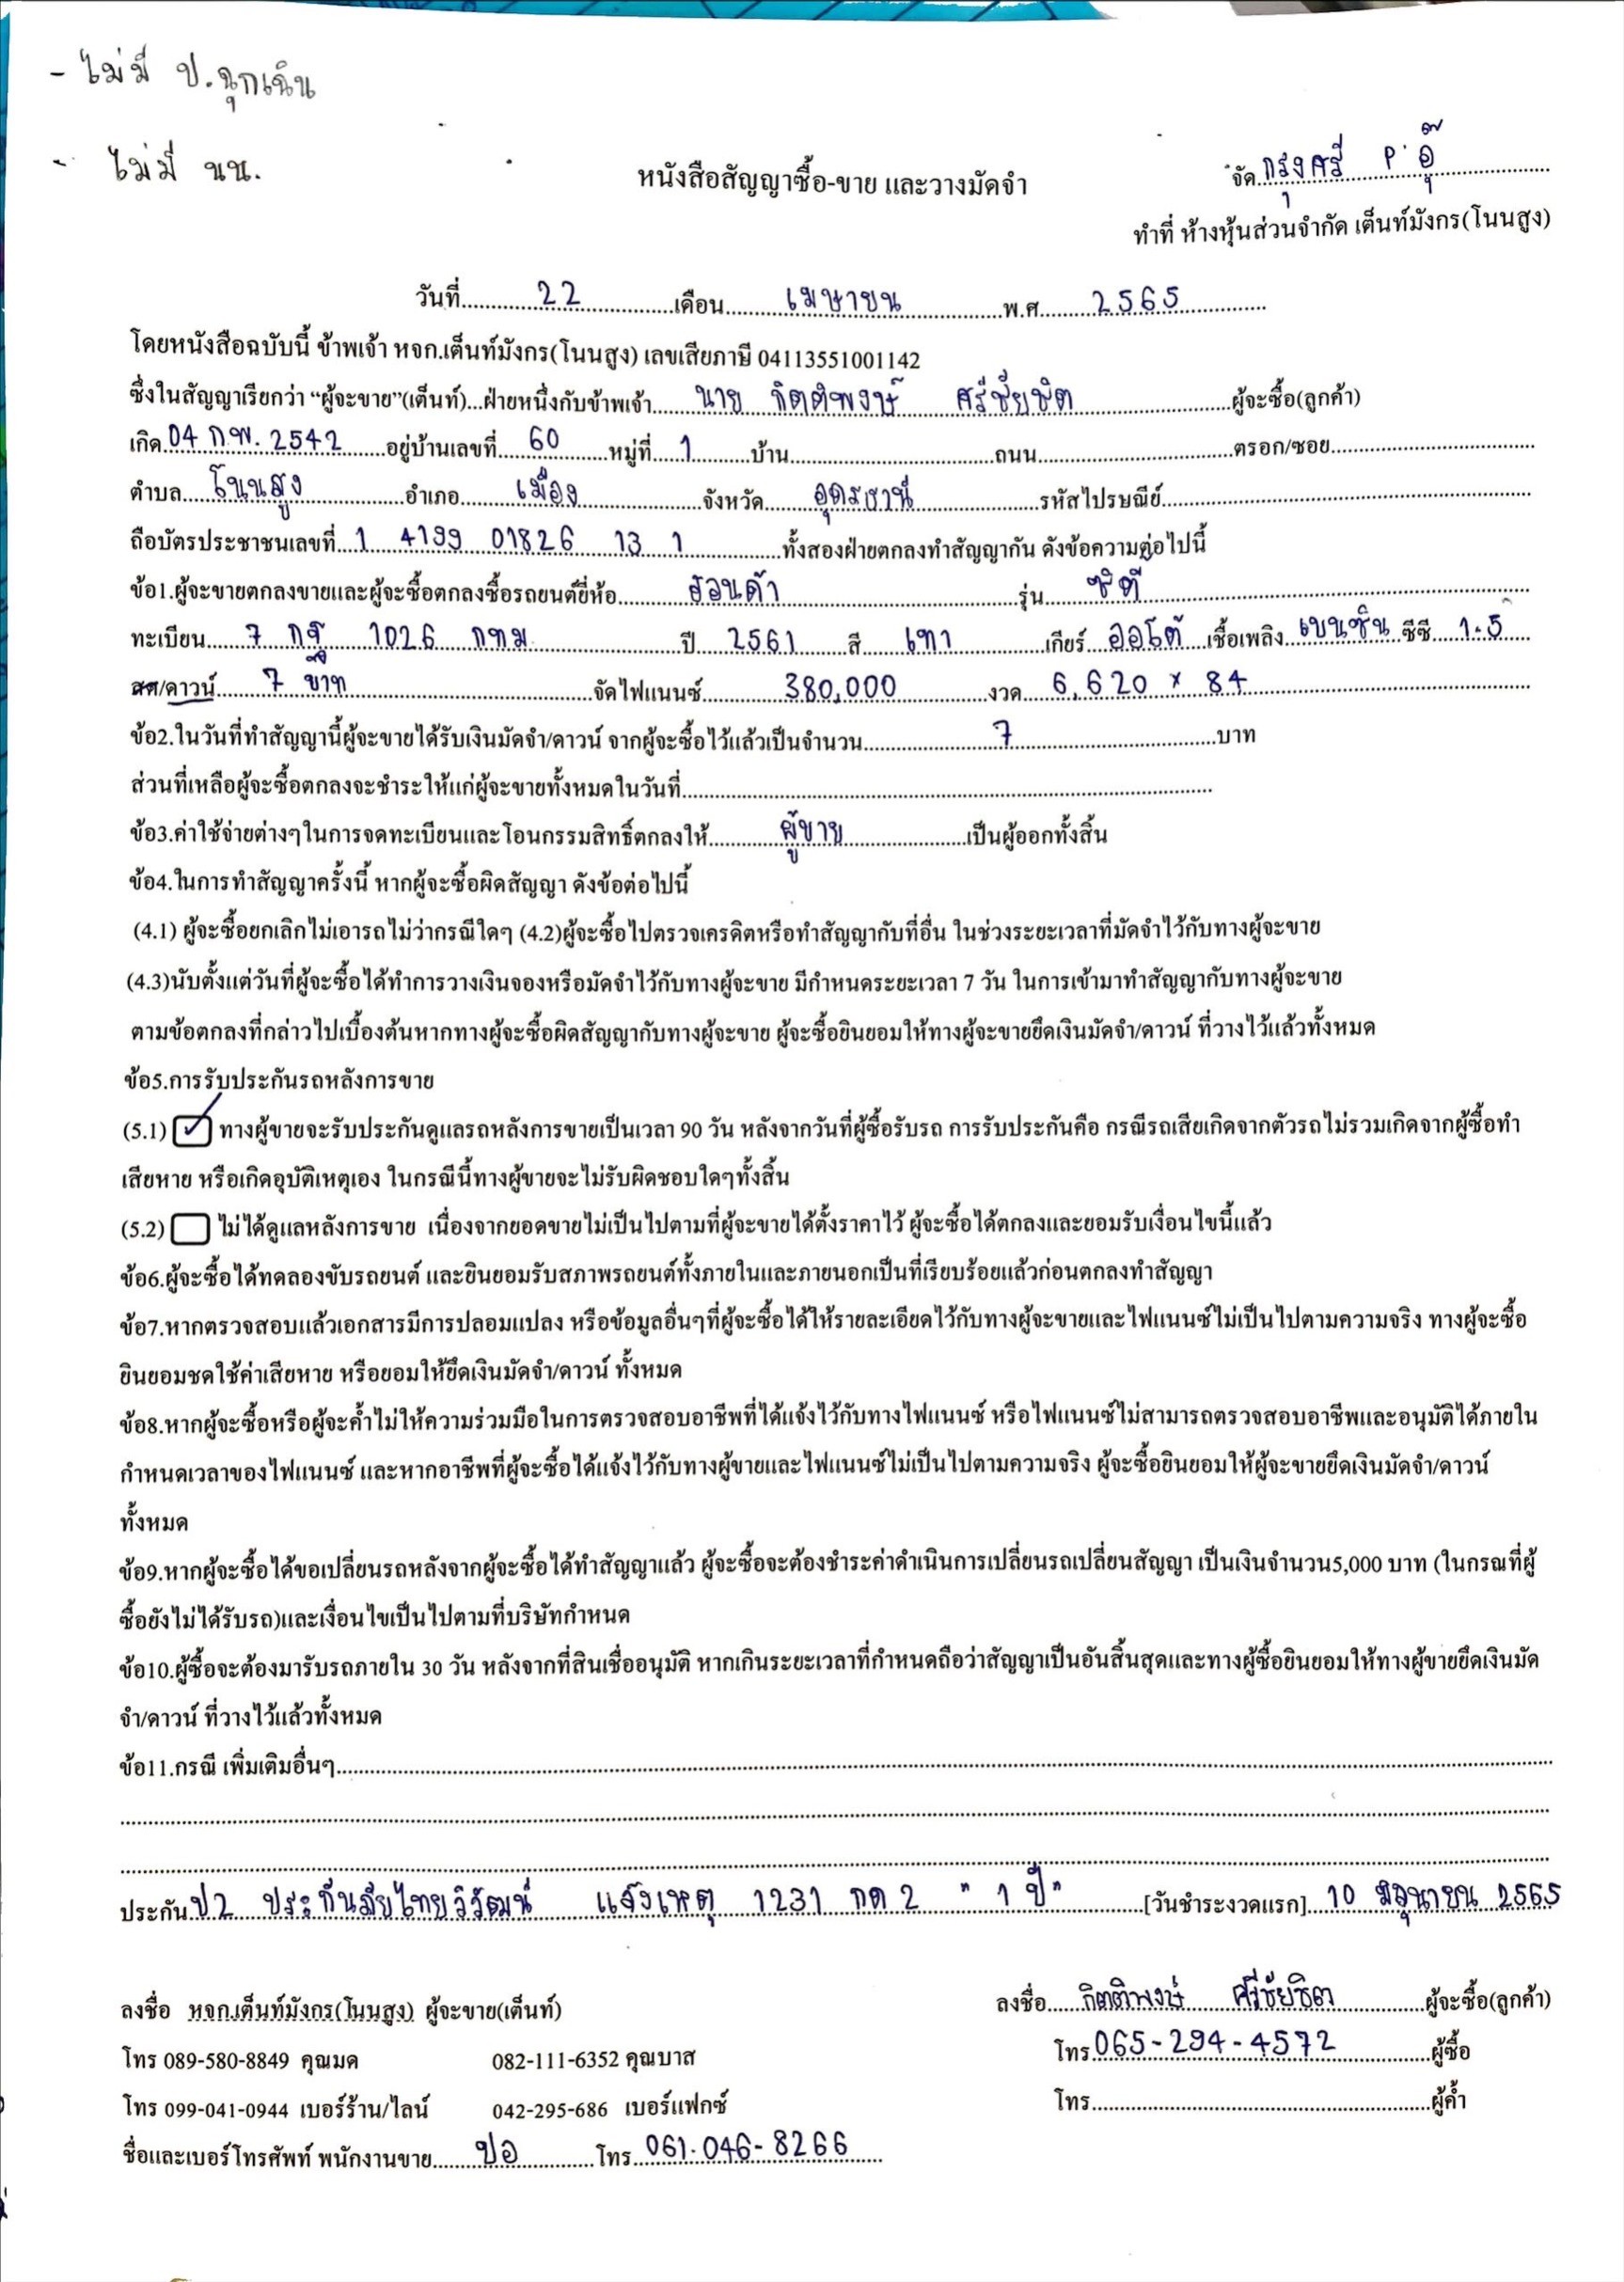 - ไม่มี ป.ฉุกเฉิน
- ไม่มี นน.
จัด กรุงศรี P'อุ๊
หนังสือสัญญาซื้อ-ขาย และวางมัดจำ
ทำที่ ห้างหุ้นส่วนจำกัด เต็นท์มังกร(โนนสูง)
วันที่ 22 เดือน เมษายน พ.ศ. 2565
โดยหนังสือฉบับนี้ ข้าพเจ้า หจก.เต็นท์มังกร(โนนสูง) เลขเสียภาษี 04113551001142
ซึ่งในสัญญาเรียกว่า “ผู้จะขาย”(เต็นท์)...ฝ่ายหนึ่งกับข้าพเจ้า นาย กิตติพงษ์ ศรีชัยชิต ผู้จะซื้อ(ลูกค้า)
เกิด 04 ก.พ. 2542 อยู่บ้านเลขที่ 60 หมู่ที่ 1 บ้าน ถนน ตรอก/ซอย
ตำบล โนนสูง อำเภอ เมือง จังหวัด อุดรธานี รหัสไปรษณีย์
ถือบัตรประชาชนเลขที่ 1 4199 01826 13 1 ทั้งสองฝ่ายตกลงทำสัญญากัน ดังข้อความต่อไปนี้
ข้อ1.ผู้จะขายตกลงขายและผู้จะซื้อตกลงซื้อรถยนต์ยี่ห้อ ฮอนด้า รุ่น ซิตี้
ทะเบียน 7 กฐ 1026 กทม ปี 2561 สี เทา เกียร์ ออโต้ เชื้อเพลิง เบนซิน ซีซี 1.5
สด/ดาวน์ 7 บาท จัดไฟแนนซ์ 380,000 งวด 6,620 x 84
ข้อ2.ในวันที่ทำสัญญานี้ผู้จะขายได้รับเงินมัดจำ/ดาวน์ จากผู้จะซื้อไว้แล้วเป็นจำนวน 7 บาท
ส่วนที่เหลือผู้จะซื้อตกลงจะชำระให้แก่ผู้จะขายทั้งหมดในวันที่
ข้อ3.ค่าใช้จ่ายต่างๆในการจดทะเบียนและโอนกรรมสิทธิ์ตกลงให้ ผู้ขาย เป็นผู้ออกทั้งสิ้น
ข้อ4.ในการทำสัญญาครั้งนี้ หากผู้จะซื้อผิดสัญญา ดังข้อต่อไปนี้
(4.1) ผู้จะซื้อยกเลิกไม่เอารถไม่ว่ากรณีใดๆ (4.2)ผู้จะซื้อไปตรวจเครดิตหรือทำสัญญากับที่อื่น ในช่วงระยะเวลาที่มัดจำไว้กับทางผู้จะขาย
(4.3)นับตั้งแต่วันที่ผู้จะซื้อได้ทำการวางเงินจองหรือมัดจำไว้กับทางผู้จะขาย มีกำหนดระยะเวลา 7 วัน ในการเข้ามาทำสัญญากับทางผู้จะขาย
ตามข้อตกลงที่กล่าวไปเบื้องต้นหากทางผู้จะซื้อผิดสัญญากับทางผู้จะขาย ผู้จะซื้อยินยอมให้ทางผู้จะขายยึดเงินมัดจำ/ดาวน์ ที่วางไว้แล้วทั้งหมด
ข้อ5.การรับประกันรถหลังการขาย
(5.1) ✓ ทางผู้ขายจะรับประกันดูแลรถหลังการขายเป็นเวลา 90 วัน หลังจากวันที่ผู้ซื้อรับรถ การรับประกันคือ กรณีรถเสียเกิดจากตัวรถไม่รวมเกิดจากผู้ซื้อทำ
เสียหาย หรือเกิดอุบัติเหตุเอง ในกรณีนี้ทางผู้ขายจะไม่รับผิดชอบใดๆทั้งสิ้น
(5.2) ไม่ได้ดูแลหลังการขาย เนื่องจากยอดขายไม่เป็นไปตามที่ผู้จะขายได้ตั้งราคาไว้ ผู้จะซื้อได้ตกลงและยอมรับเงื่อนไขนี้แล้ว
ข้อ6.ผู้จะซื้อได้ทดลองขับรถยนต์ และยินยอมรับสภาพรถยนต์ทั้งภายในและภายนอกเป็นที่เรียบร้อยแล้วก่อนตกลงทำสัญญา
ข้อ7.หากตรวจสอบแล้วเอกสารมีการปลอมแปลง หรือข้อมูลอื่นๆที่ผู้จะซื้อได้ให้รายละเอียดไว้กับทางผู้จะขายและไฟแนนซ์ไม่เป็นไปตามความจริง ทางผู้จะซื้อ
ยินยอมชดใช้ค่าเสียหาย หรือยอมให้ยึดเงินมัดจำ/ดาวน์ ทั้งหมด
ข้อ8.หากผู้จะซื้อหรือผู้จะค้ำไม่ให้ความร่วมมือในการตรวจสอบอาชีพที่ได้แจ้งไว้กับทางไฟแนนซ์ หรือไฟแนนซ์ไม่สามารถตรวจสอบอาชีพและอนุมัติได้ภายใน
กำหนดเวลาของไฟแนนซ์ และหากอาชีพที่ผู้จะซื้อได้แจ้งไว้กับทางผู้ขายและไฟแนนซ์ไม่เป็นไปตามความจริง ผู้จะซื้อยินยอมให้ผู้จะขายยึดเงินมัดจำ/ดาวน์
ทั้งหมด
ข้อ9.หากผู้จะซื้อได้ขอเปลี่ยนรถหลังจากผู้จะซื้อได้ทำสัญญาแล้ว ผู้จะซื้อจะต้องชำระค่าดำเนินการเปลี่ยนรถเปลี่ยนสัญญา เป็นเงินจำนวน5,000 บาท (ในกรณที่ผู้
ซื้อยังไม่ได้รับรถ)และเงื่อนไขเป็นไปตามที่บริษัทกำหนด
ข้อ10.ผู้ซื้อจะต้องมารับรถภายใน 30 วัน หลังจากที่สินเชื่ออนุมัติ หากเกินระยะเวลาที่กำหนดถือว่าสัญญาเป็นอันสิ้นสุดและทางผู้ซื้อยินยอมให้ทางผู้ขายยึดเงินมัด
จำ/ดาวน์ ที่วางไว้แล้วทั้งหมด
ข้อ11.กรณี เพิ่มเติมอื่นๆ
ประกัน ป2 ประกันภัยไทยวิวัฒน์ แจ้งเหตุ 1231 กด 2 " 1 ปี" [วันชำระงวดแรก] 10 มิถุนายน 2565
ลงชื่อ หจก.เต็นท์มังกร(โนนสูง) ผู้จะขาย(เต็นท์)
ลงชื่อ กิตติพงษ์ ศรีชัยชิต ผู้จะซื้อ(ลูกค้า)
โทร 089-580-8849 คุณมด 082-111-6352 คุณบาส
โทร 065-294-4572 ผู้ซื้อ
โทร 099-041-0944 เบอร์ร้าน/ไลน์ 042-295-686 เบอร์แฟกซ์
โทร ผู้ค้ำ
ชื่อและเบอร์โทรศัพท์ พนักงานขาย ปอ โทร 061-046-8266